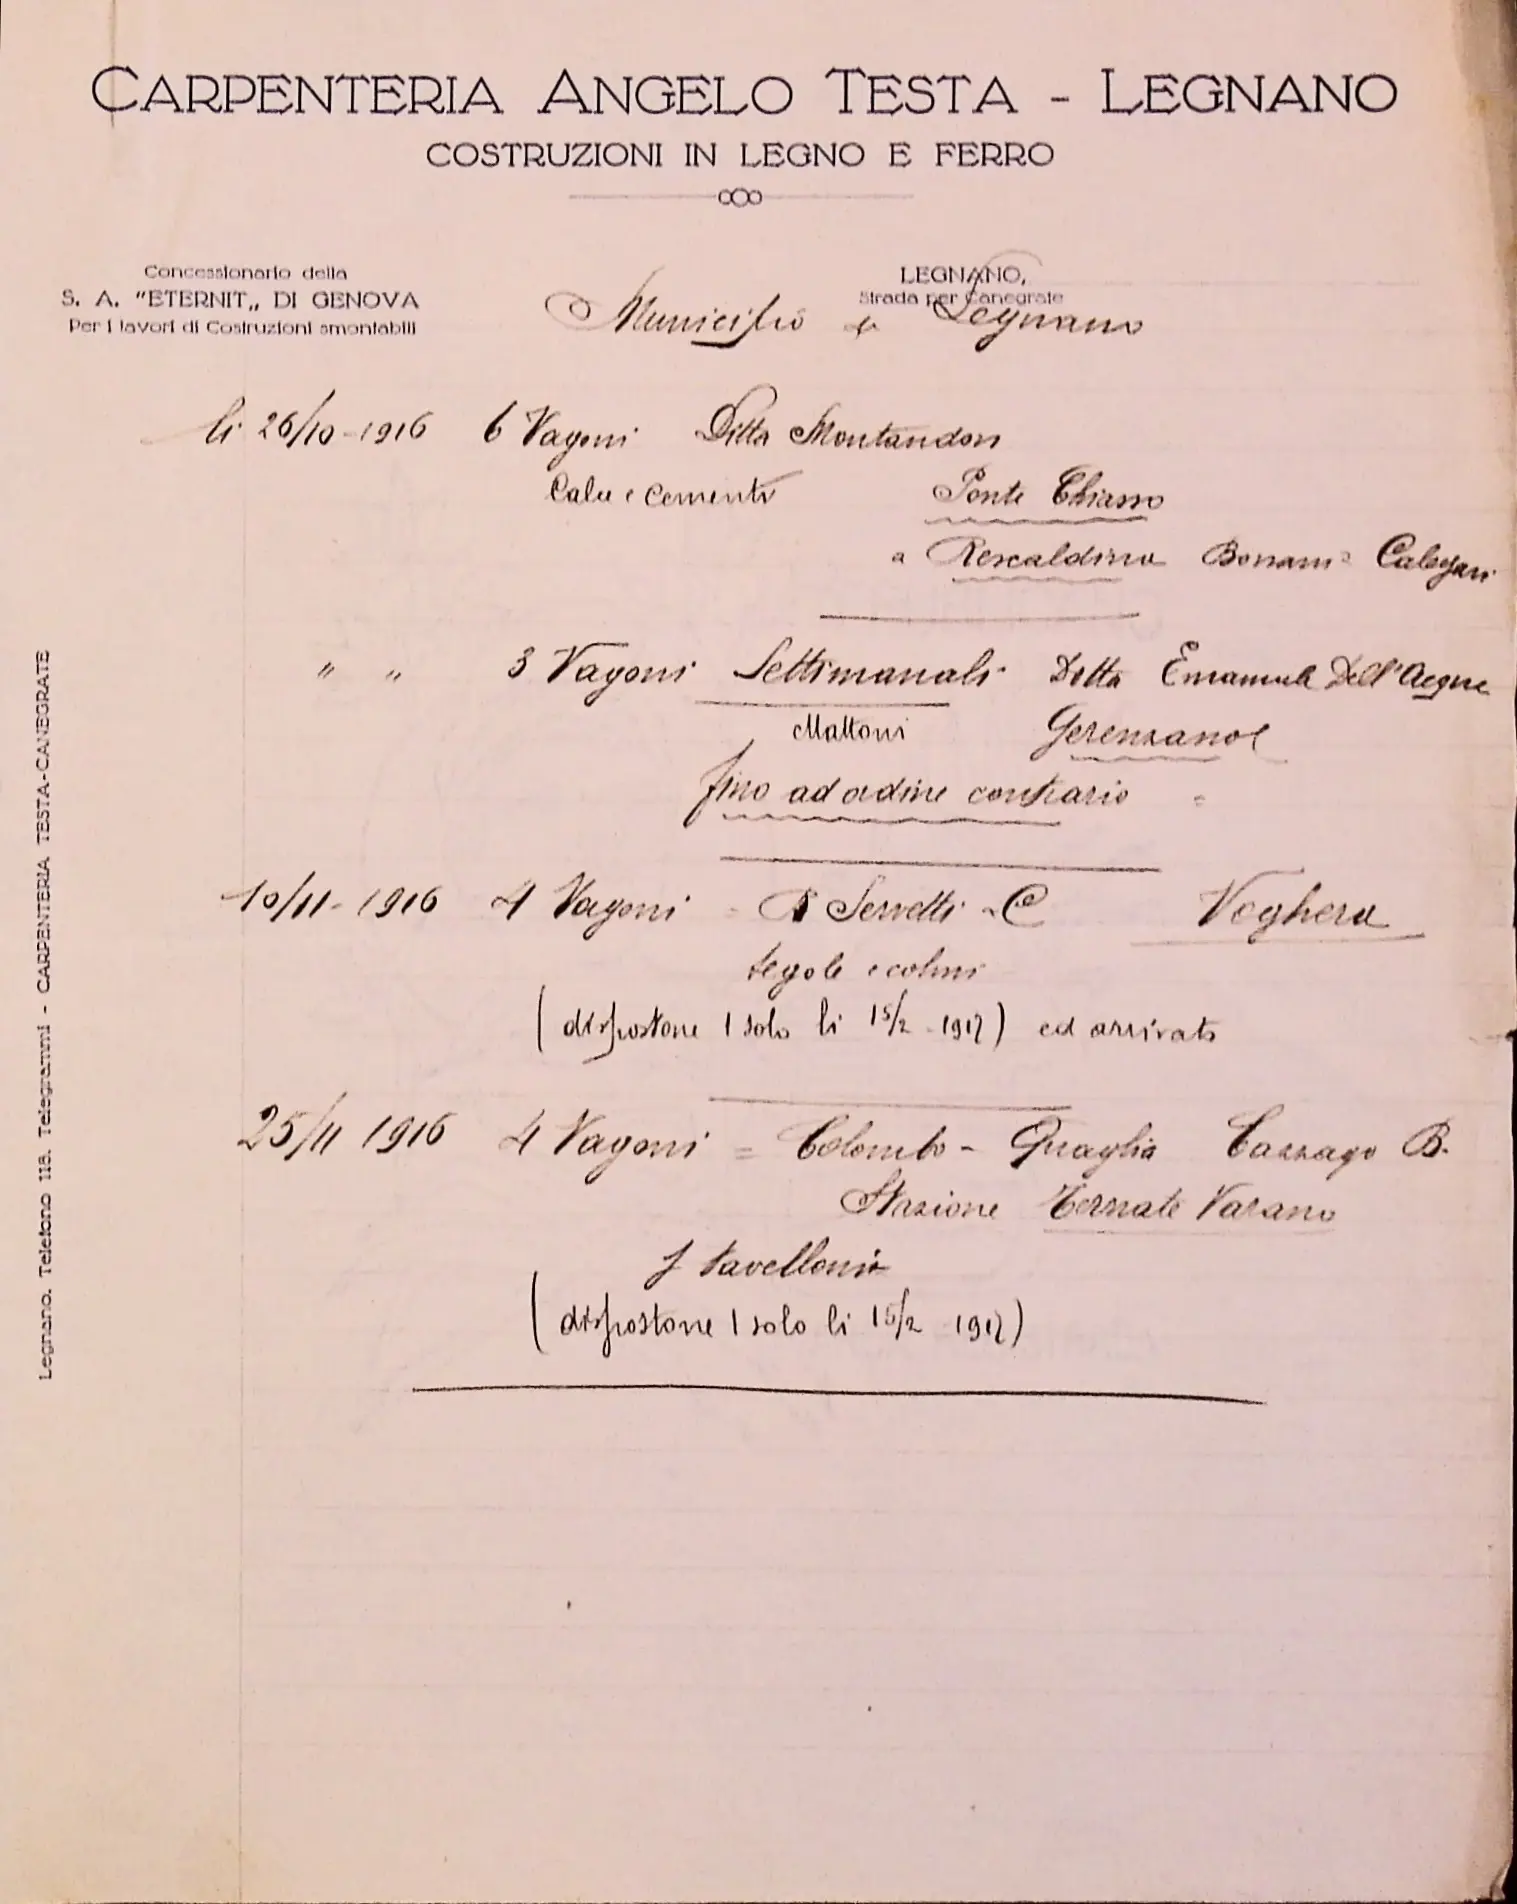 CARPENTERIA ANGELO TESTA - LEGNANO
COSTRUZIONI IN LEGNO E FERRO
Concessionario della
S. A. "ETERNIT„ DI GENOVA
Per i lavori di Costruzioni smontabili
LEGNANO,
Strada per Canegrate
Municipio di Legnano
li 26/10-1916 6 Vagoni Ditta Montandon
Calce e cementi Ponte Chiasso
a Rescaldina Bonarii Calegari
" " 3 Vagoni Settimanali Ditta Emanuele Dell'Acqua
Mattoni Gerenzano
fino ad ordine contrario
10/11-1916 4 Vagoni - Servetti - C Voghera
tegole e colmi
(disposizione 1 solo li 15/2 - 1917) ed arrivato
25/11 1916 4 Vagoni = Colombo - Quaglia Cazzago B.
Stazione Ternate Varano
tavelloni
(disposizione 1 solo li 15/2 1917)
Legnano. Telefono 118. Telegrammi - CARPENTERIA TESTA-CANEGRATE